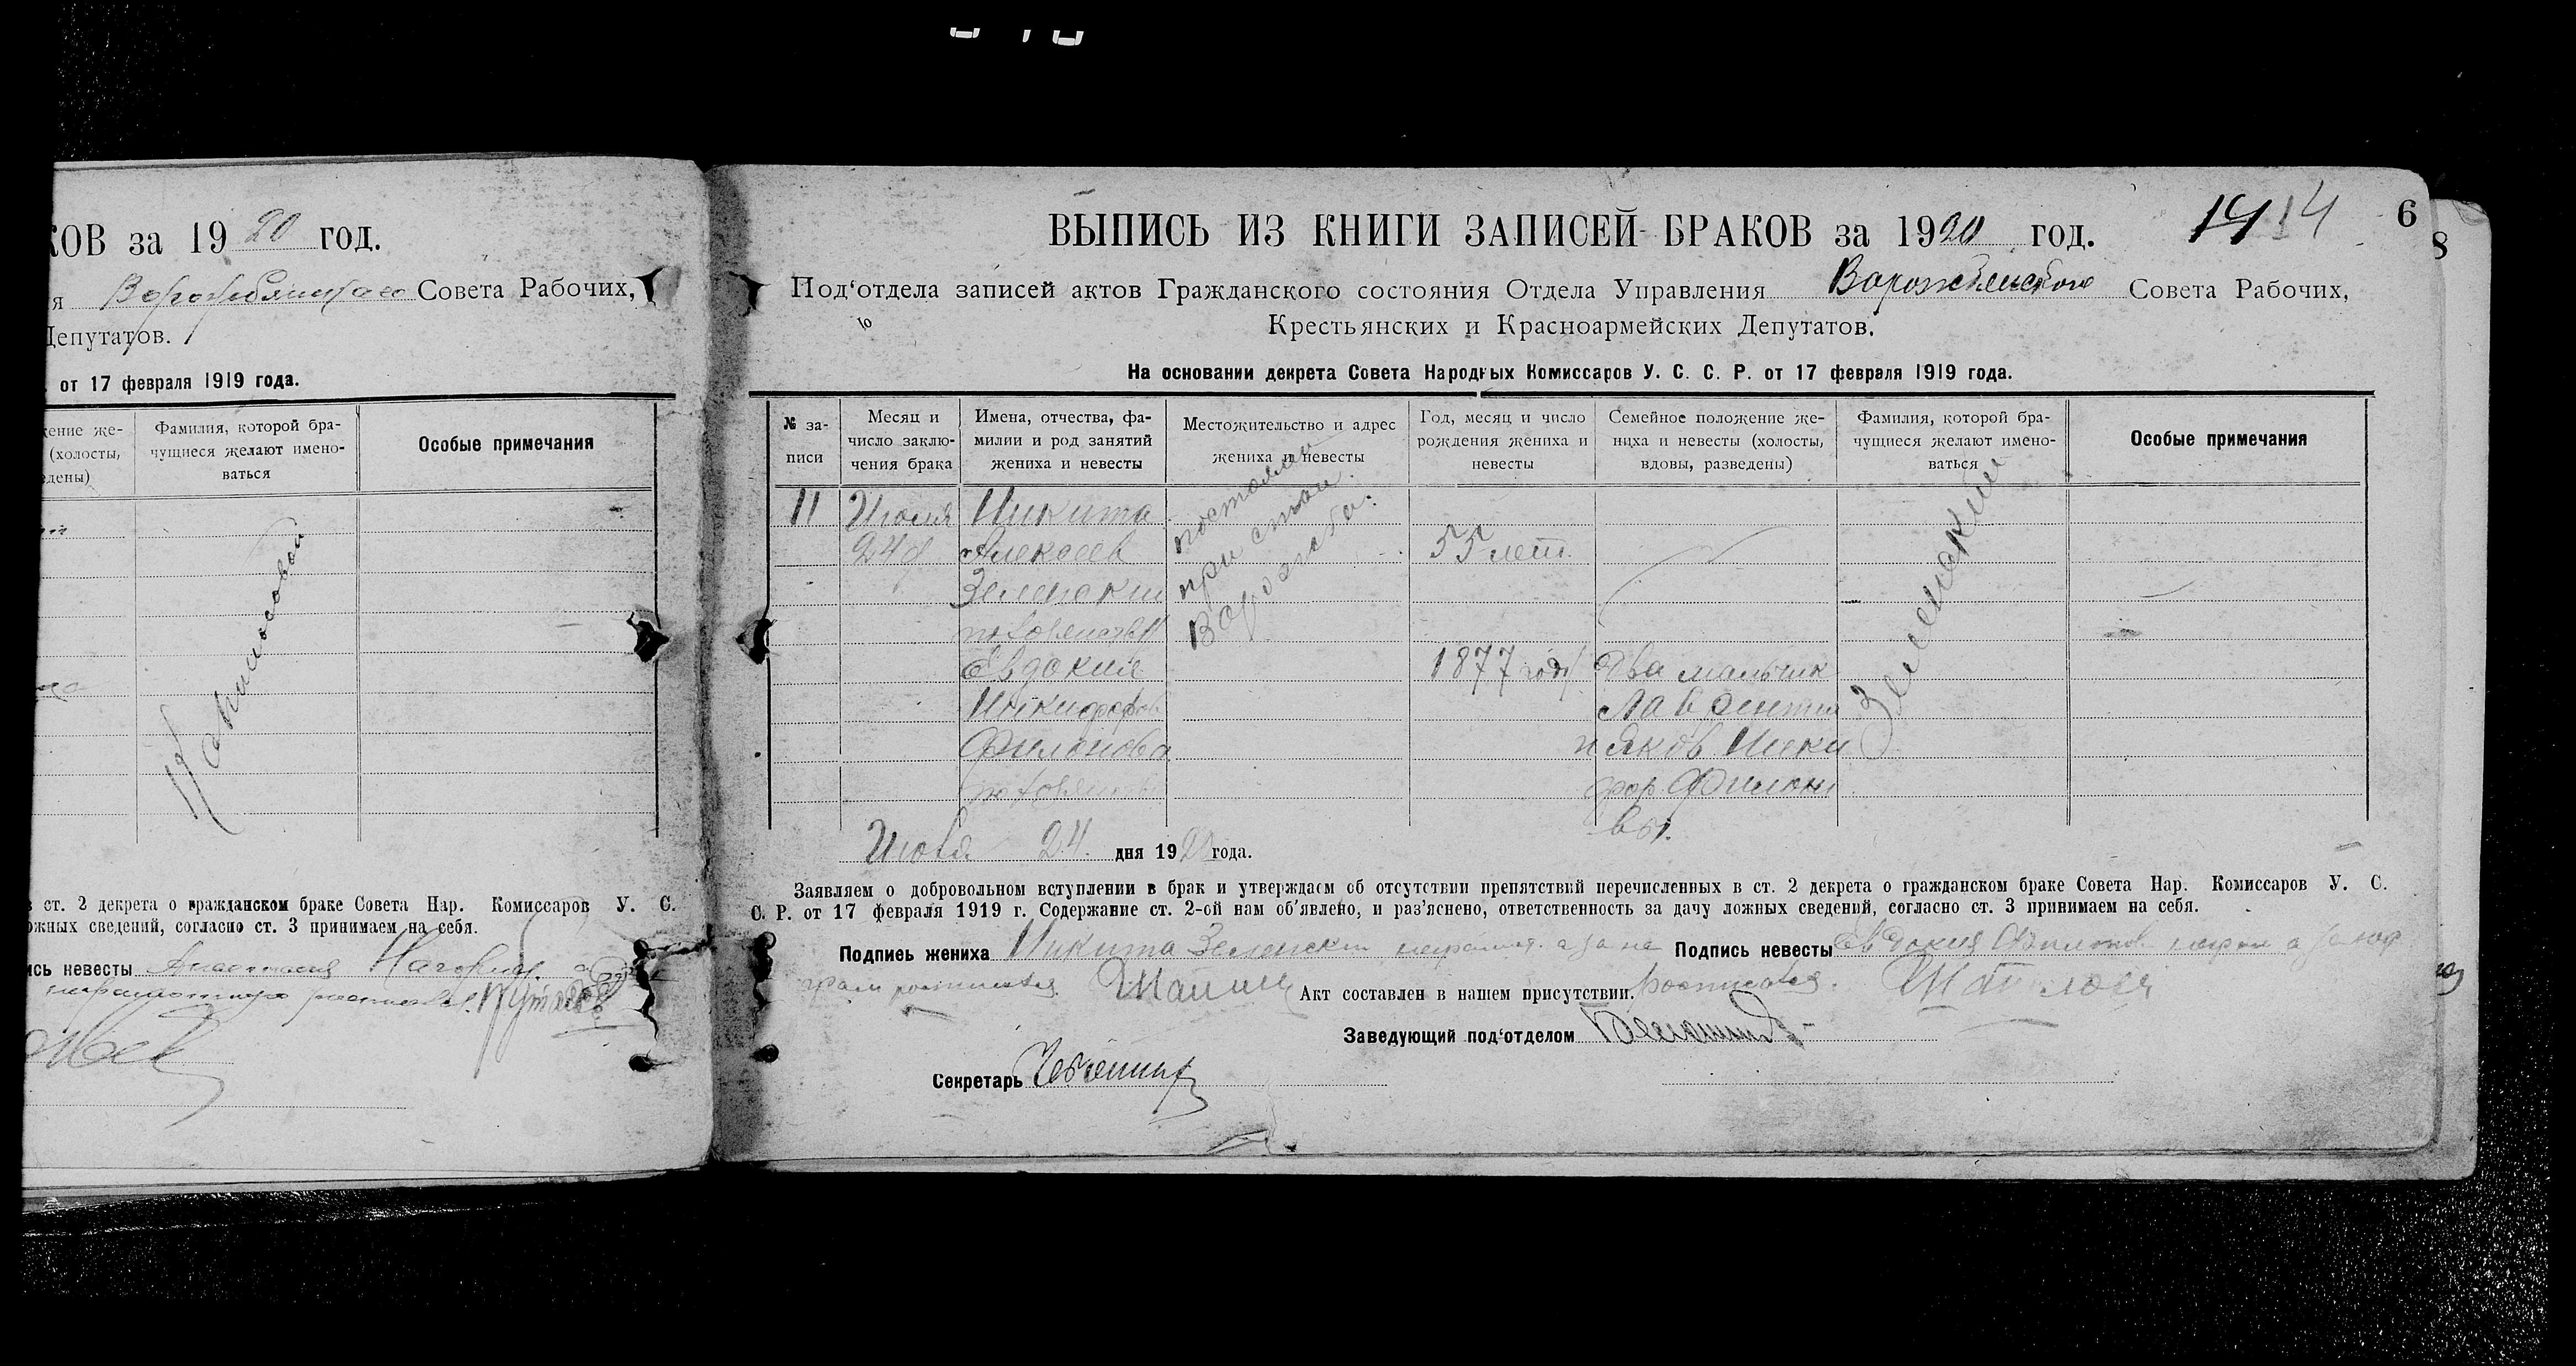 КОВ за 1920 год.
я Ворожбянского Совета Рабочих,
Депутатов.
от 17 февраля 1919 года.
ение же-
(холосты,
едены)
Фамилия, которой бра-
чущиеся желают имено-
ваться
Особые примечания
в ст. 2 декрета о гражданском браке Совета Нар. Комиссаров У. С.
ожных сведений, согласно ст. 3 принимаем на себя.
ись невесты Анастасия
ВЫПИСЬ ИЗ КНИГИ ЗАПИСЕЙ БРАКОВ за 1920 год.
14 14
6
8
Под‘отдела записей актов Гражданского состояния Отдела Управления Ворожбянского Совета Рабочих,
Крестьянских и Красноармейских Депутатов.
На основании декрета Совета Народных Комиссаров У. С. С. Р. от 17 февраля 1919 года.
№ за-
писи
Месяц и
число заклю-
чения брака
Имена, отчества, фа-
милии и род занятий
жениха и невесты
Местожительство и адрес
жениха и невесты
Год, месяц и число
рождения жениха и
невесты
Семейное положение же-
ниха и невесты (холосты,
вдовы, разведены)
Фамилия, которой бра-
чущиеся желают имено-
ваться
Особые примечания
11
Июля
24
Никита
Алексеев
Зеленски
Евдокия
Никифоров
Филонова
при стан.
Ворожба.
55 лет.
1877
два мальчик
Лаврентия
и Яков Ники
фор. Филоно
вы.
Зеленский
24 дня 1920 года.
Заявляем о добровольном вступлении в брак и утверждаем об отсутствии препятствий перечисленных в ст. 2 декрета о гражданском браке Совета Нар. Комиссаров У. С.
С. Р. от 17 февраля 1919 г. Содержание ст. 2-ой нам об’явлено, и раз’яснено, ответственность за дачу ложных сведений, согласно ст. 3 принимаем на себя.
Подпись жениха Никита Зеленски неграмот. а за не
Подпись невесты Евдокия Филонов
Акт составлен в нашем присутствии.
Заведующий под‘отделом
Секретарь